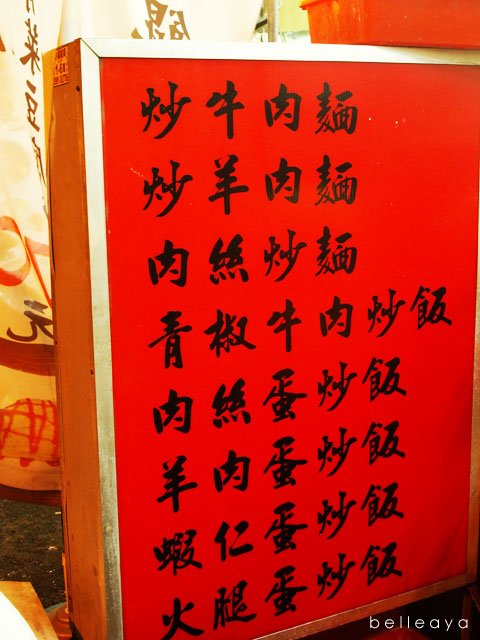 炒牛肉麵
炒羊肉麵
肉絲炒麵
青椒牛肉炒飯
肉絲蛋炒飯
羊肉蛋炒飯
蝦仁蛋炒飯
火腿蛋炒飯
菜豆
元
belleaya